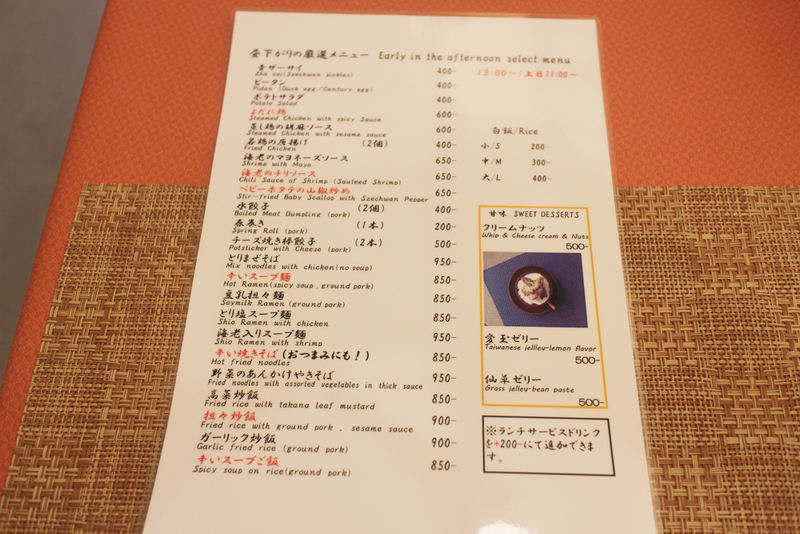 昼下がりの厳選メニュー Early in the afternoon select menu
13:00〜/土日11:00〜
青ザーサイ 400-
Zha cai(Szechwan pickles)
ピータン 400-
Pidan (Duck egg/Century egg)
ポテトサラダ 400-
Potato Salad
よだれ鶏 600-
Steamed Chicken with spicy Sauce
蒸し鶏の胡麻ソース 600-
Steamed Chicken with sesame sauce
若鶏の唐揚げ (2個) 400-
Fried Chicken
海老のマヨネーズソース 650-
Shrimp with Mayo
海老のチリソース 650-
Chili Sauce of Shrimp (Sauteed Shrimp)
ベビーホタテの山椒炒め 650-
Stir-fried Baby Scallos with Szechwan Pepper
水餃子 (2個) 400-
Boiled Meat Dumpling (pork)
春巻き (1本) 200-
Spring Roll (pork)
チーズ焼き棒餃子 (2本) 500-
Potsticker with Cheese (pork)
とりまぜそば 950-
Mix noodles with chicken(no soup)
辛いスープ麺 850-
Hot Ramen(spicy soup,ground pork)
豆乳担々麺 850-
Soymilk Ramen (ground pork)
とり塩スープ麺 850-
Shio Ramen with chicken
海老入りスープ麺 950-
Shio Ramen with shrimp
辛い焼きそば(おつまみにも!) 850-
Hot fried noodles
野菜のあんかけやきそば 950-
Fried noodles with assorted vegetables in thick sauce
高菜炒飯 850-
Fried rice with takana leaf mustard
担々炒飯 900-
Fried rice with ground pork , sesame sauce
ガーリック炒飯 900-
Garlic fried rice (ground pork)
辛いスープご飯 850-
Spicy soup on rice(ground pork)
白飯/Rice
小/S 200-
中/M 300-
大/L 400-
甘味 SWEET DESSERTS
クリームナッツ
Whip & Cheese cream & Nuts
500-
愛玉ゼリー
Taiwanese jellley-lemon flavor
500-
仙草ゼリー
Grass jelley-bean paste
500-
※ランチサービスドリンク
を+200-にて追加できま
す。